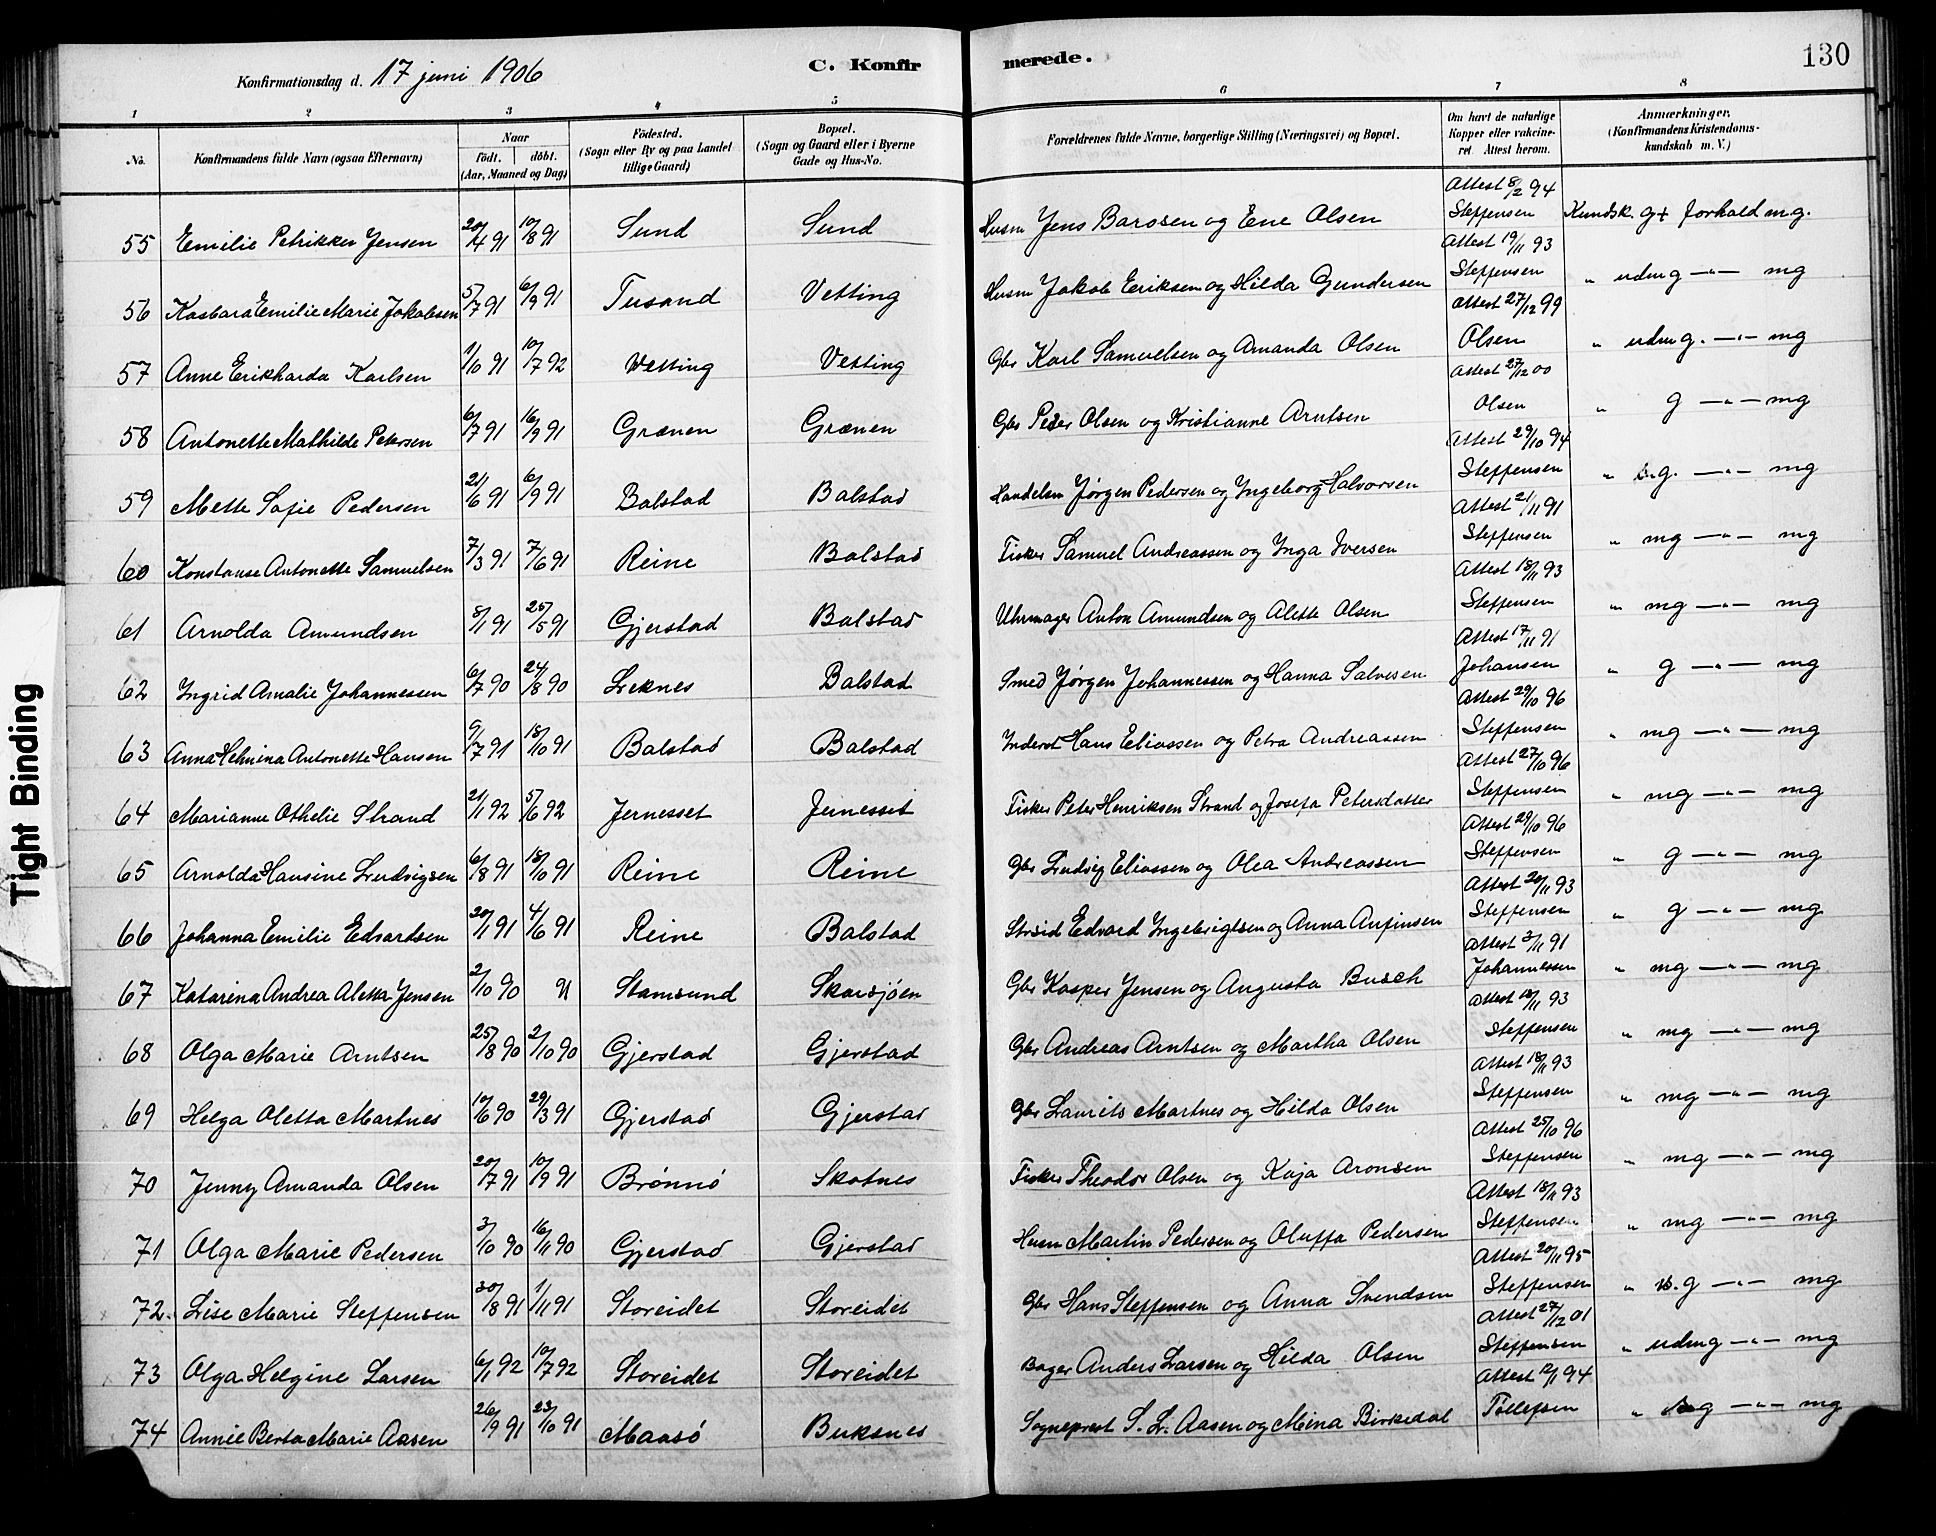 130
Konfirmationsdag d. 17 juni 1906
C. Konfirmerede.
1 2 3 4 5 6 7 8
No. Konfirmandens fulde Navn (ogsaa Efternavn) Naar født. døbt. (Aar, Maaned og Dag) Fødested. (Sogn eller By og paa Landet tillige Gaard) Bopæl. (Sogn og Gaard eller i Byerne Gade og Hus-No. Forældrenes fulde Navne, borgerlige Stilling (Næringsvei) og Bopæl. Om havt de naturlige Kopper eller vakcineret. Attest herom. Anmærkninger. (Konfirmandens Kristendomskundskab m. V.)
55 Emilie Petrikke Jensen 20/4 91 10/8 91 Sund Sund Husm Jens Barosen og Ene Olsen Attest 8/2 94 Steffensen Kundsk. g+ forhold mg.
56 Kasbara Emilie Marie Jakobsen 5/7 91 6/9 91 Tusand Vetting Husm Jakob Eriksen og Hilda Gundersen Attest 19/11 93 Steffensen " udm g —"— mg
57 Anne Erikharda Karlsen 1/10 91 10/7 92 Vetting Vetting Gbr Karl Samuelsen og Amanda Olsen Attest 27/12 99 Olsen " udm g. —"— mg
58 Antonette Mathilde Petersen 6/7 91 16/9 91 Grænen Grænen Gbr Peder Olsen og Kristianne Arntsen Attest 27/12 00 Olsen " g —"— mg
59 Mette Sofie Pedersen 21/6 91 6/9 91 Balstad Balstad Handelsm Jørgen Pedersen og Ingeborg Halvorsen Attest 29/10 94 Steffensen " s.g. —"— mg
60 Konstanse Antonette Samuelsen 7/3 91 7/6 91 Reine Balstad Fisker Samuel Andreassen og Inga Iversen Attest 21/11 91 Steffensen " mg —"— mg
61 Arnolda Amundsen 8/1 91 25/5 91 Gjerstad Balstad Uhrmager Anton Amundsen og Alette Olsen Attest 18/11 93 Steffensen " mg —"— mg
62 Ingrid Amalie Johannessen 6/7 90 24/8 90 Leknes Balstad Smed Jørgen Johannessen og Hanna Salvesen Attest 17/11 91 Johansen " g —"— mg
63 Anna Helmina Antonette Hansen 9/7 91 18/10 91 Balstad Balstad Inderst Hans Eliassen og Petra Andreassen Attest 29/10 96 Steffensen " mg —"— mg
64 Marianne Othelie Strand 21/1 92 5/6 92 Jernesset Jernesset Fisker Peter Henriksen Strand og Josefa Petersdatter Attest 27/10 96 Steffensen " mg —"— mg
65 Arnolda Hansine Ludvigsen 6/8 91 18/10 91 Reine Reine Gbr Ludvig Eliassen og Olea Andreassen Attest 29/10 96 Steffensen " g —"— mg
66 Johanna Emilie Edvardsen 20/1 91 4/6 91 Reine Balstad Strsid Edvard Ingebrigtsen og Anna Anfinsen Attest 20/11 93 Steffensen " g —"— mg
67 Katarina Andrea Aletta Jensen 2/10 90 91 Stamsund Skarsjøen Gbr Kasper Jensen og Augusta Busch Attest 3/11 91 Johannessen " mg —"— mg
68 Olga Marie Arntsen 25/8 90 2/10 90 Gjerstad Gjerstad Gbr Andreas Arntsen og Martha Olsen Attest 18/11 93 Steffensen " mg —"— mg
69 Helga Oletta Martnes 10/6 90 29/3 91 Gjerstad Gjerstad Gbr Laurits Martnes og Hilda Olsen Attest 18/11 93 Steffensen " mg —"— mg
70 Jenny Amanda Olsen 20/7 91 10/9 91 Brønnø Skotnes Fisker Theodor Olsen og Kaja Aronsen Attest 25/10 96 Steffensen " mg —"— mg
71 Olga Marie Pedersen 3/10 90 16/11 90 Gjerstad Gjerstad Husm Martin Pedersen og Oluffa Pedersen Attest 18/11 93 Steffensen " mg —"— mg
72. Lise Marie Steffensen 30/8 91 1/11 91 Storeidet Storeidet Gbr Hans Steffensen og Anna Svendsen Attest 20/11 95 Steffensen " s.g —"— mg
73 Olga Helgine Larsen 6/1 92 10/7 92 Storeidet Storeidet Bager Anders Larsen og Hilda Olsen Attest 27/12 01 Steffensen " udmg —"— mg
74 Annie Berta Marie Aasen 26/9 91 23/10 91 Maasø Buksnes Sogneprest S. L. Aasen og Mina Birkedal Attest 12/1 94 Tollefsen " g —"— mg
Tight Binding